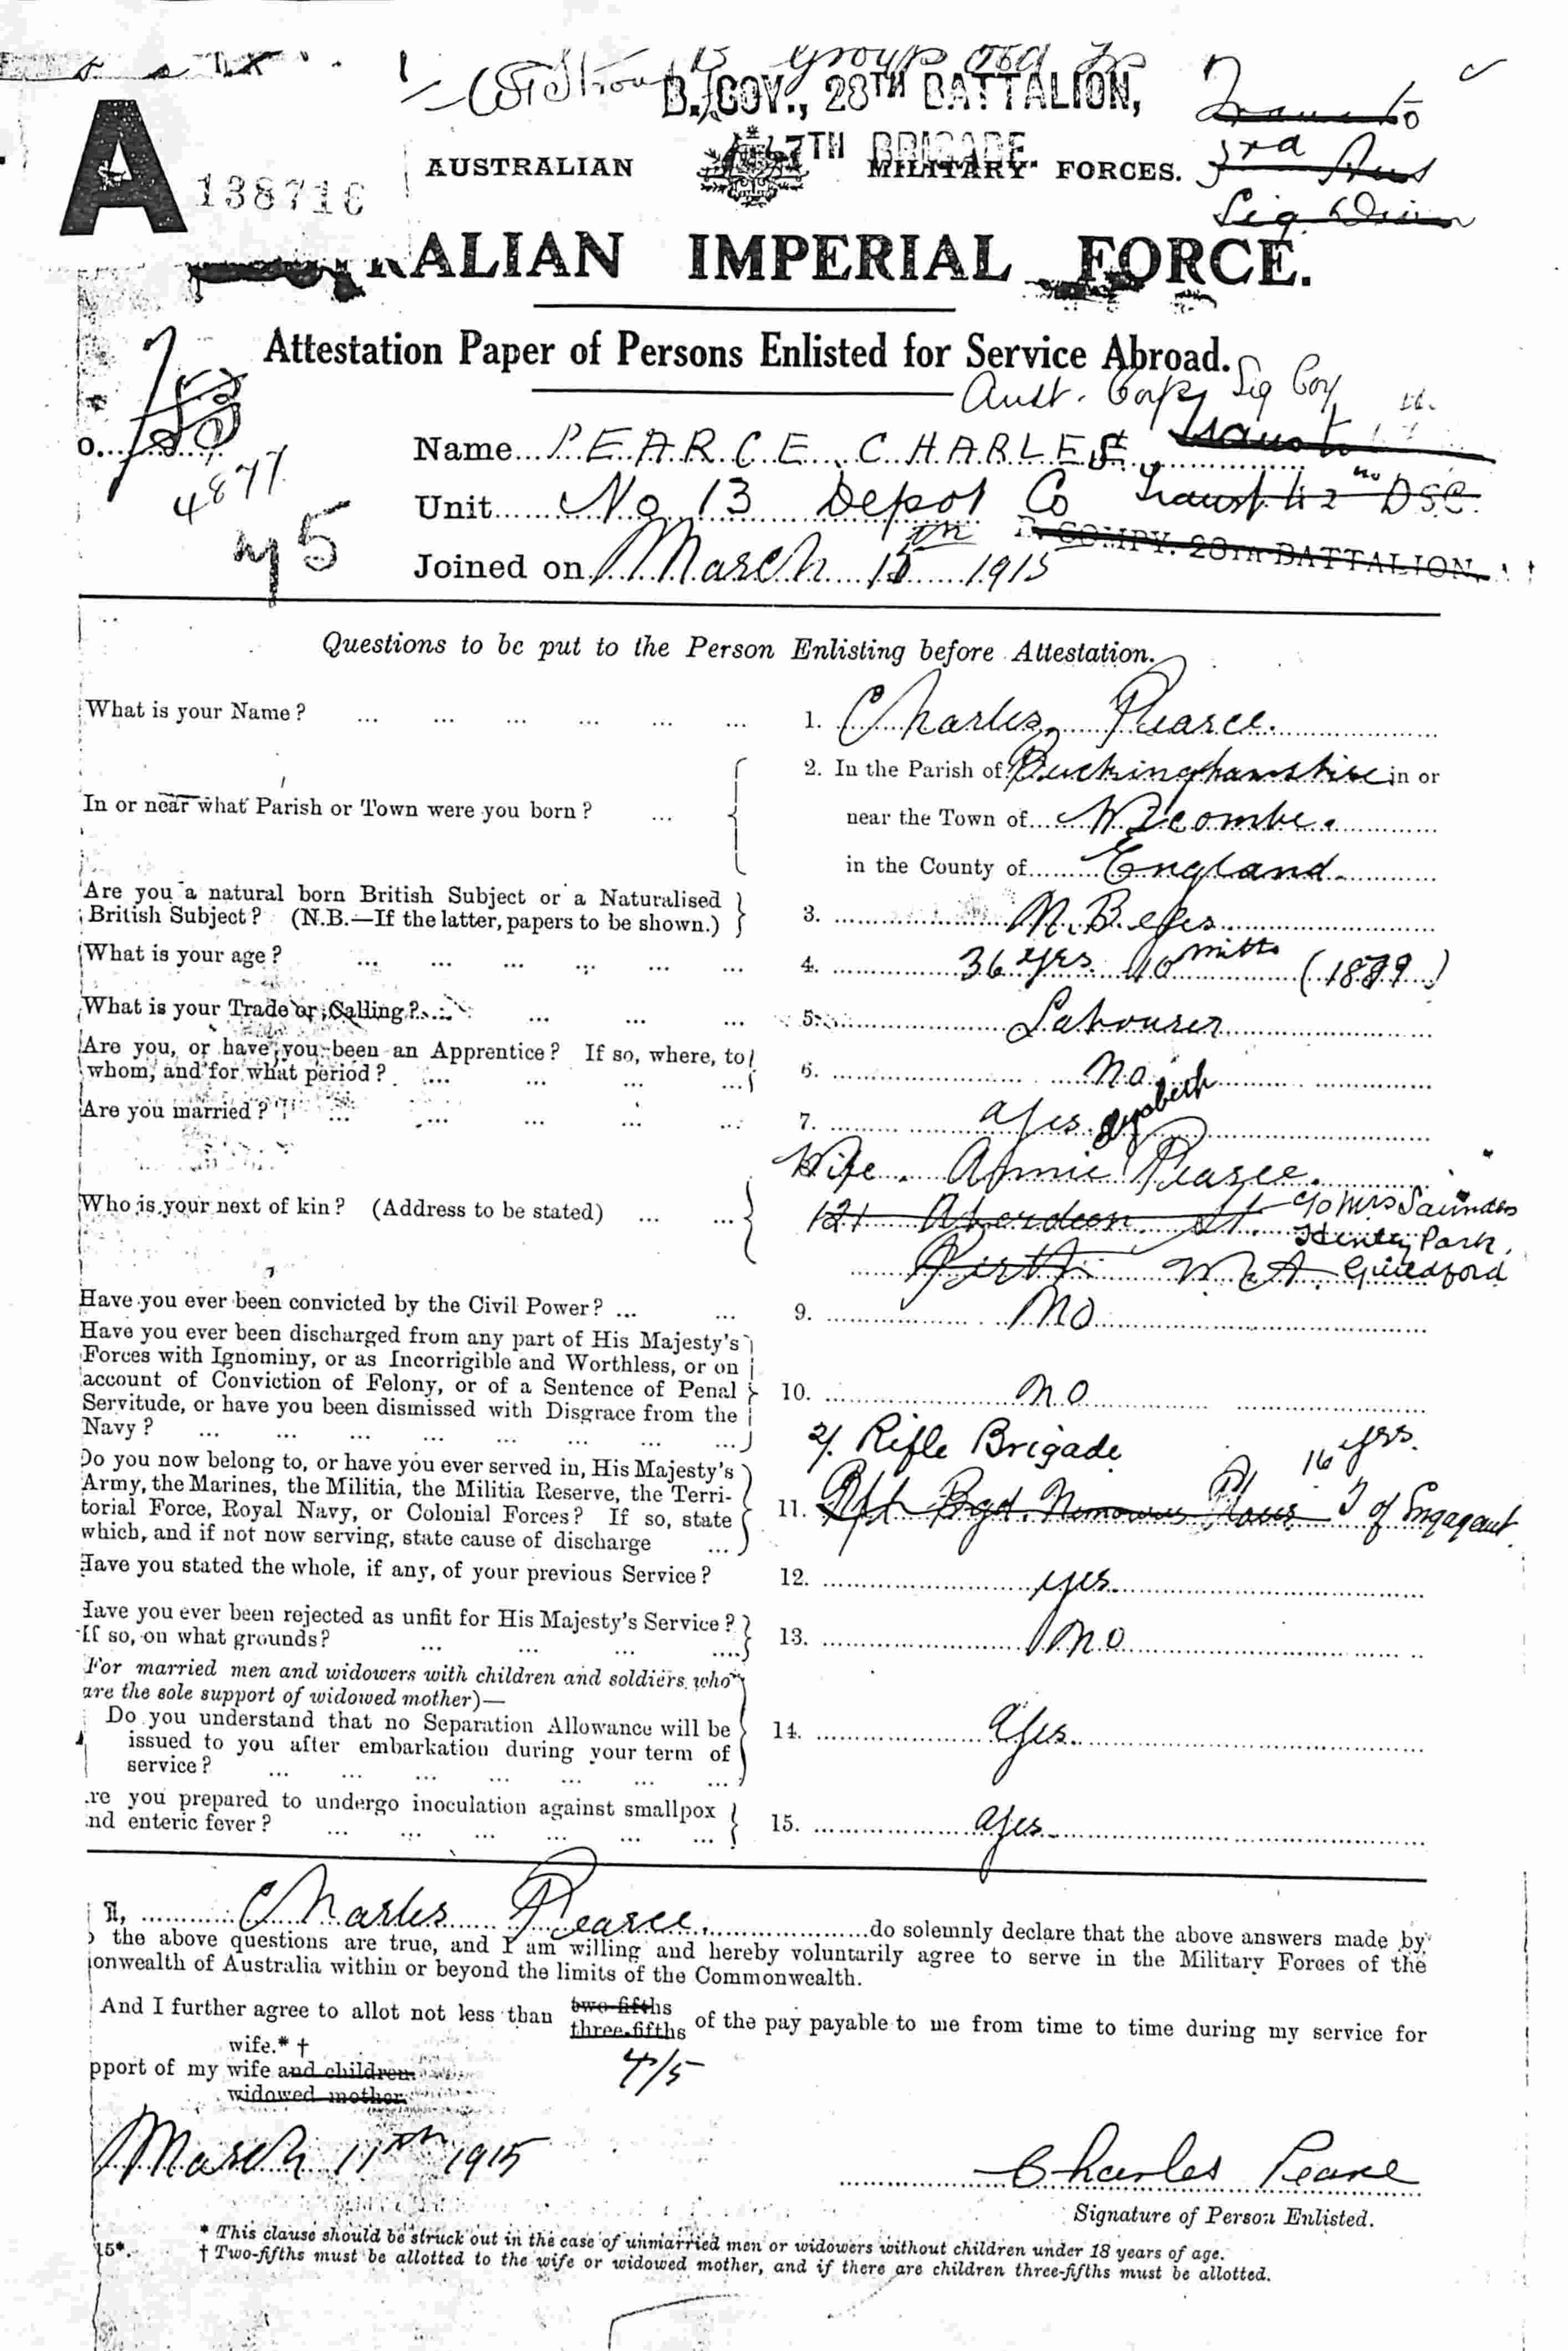 B. COY., 28TH BATTALION,
7TH BRIGADE.
A
138716
AUSTRALIAN MILITARY FORCES.
3rd Aus
Sig
RALIAN IMPERIAL FORCE.
Attestation Paper of Persons Enlisted for Service Abroad.
Aust. Corps Sig Coy
o.
4877
Name PEARCE CHARLES
Unit No 13 Depot Co
Joined on March 11th 1915
B. COMPY. 28TH BATTALION.
Questions to be put to the Person Enlisting before Attestation.
What is your Name? ... 1. Charles Pearce.
In or near what Parish or Town were you born? ... 2. In the Parish of Buckinghamshire in or
near the Town of Wicombe.
in the County of England.
Are you a natural born British Subject or a Naturalised
British Subject? (N.B.—If the latter, papers to be shown.) 3. N.B. Yes
What is your age? ... 4. 36 yrs 10 mths (1879)
What is your Trade or Calling? ... 5. Labourer
Are you, or have you been an Apprentice? If so, where, to
whom, and for what period? ... 6. No
Are you married? ... 7. Yes.
Wife. Annie Pearce.
Who is your next of kin? (Address to be stated) ... 121 Aberdeen St. c/o Mrs Saunders
Henley Park,
Perth W.A. Guildford
Have you ever been convicted by the Civil Power? ... 9. No
Have you ever been discharged from any part of His Majesty's
Forces with Ignominy, or as Incorrigible and Worthless, or on
account of Conviction of Felony, or of a Sentence of Penal
Servitude, or have you been dismissed with Disgrace from the
Navy? ... 10. No
2/. Rifle Brigade 16 yrs.
Do you now belong to, or have you ever served in, His Majesty's
Army, the Marines, the Militia, the Militia Reserve, the Terri-
torial Force, Royal Navy, or Colonial Forces? If so, state
which, and if not now serving, state cause of discharge ... 11. T of Engagmt
Have you stated the whole, if any, of your previous Service? 12. Yes
Have you ever been rejected as unfit for His Majesty's Service?
If so, on what grounds? ... 13. No
For married men and widowers with children and soldiers who
are the sole support of widowed mother)—
Do you understand that no Separation Allowance will be
issued to you after embarkation during your term of
service? ... 14. Yes.
re you prepared to undergo inoculation against smallpox
nd enteric fever? ... 15. Yes
I, Charles Pearce, do solemnly declare that the above answers made by
the above questions are true, and I am willing and hereby voluntarily agree to serve in the Military Forces of the
onwealth of Australia within or beyond the limits of the Commonwealth.
And I further agree to allot not less than two-fifths three-fifths of the pay payable to me from time to time during my service for
4/5
wife.* †
pport of my wife and children.
widowed mother.
March 11th 1915
Charles Pearce
Signature of Person Enlisted.
* This clause should be struck out in the case of unmarried men or widowers without children under 18 years of age.
15*. † Two-fifths must be allotted to the wife or widowed mother, and if there are children three-fifths must be allotted.